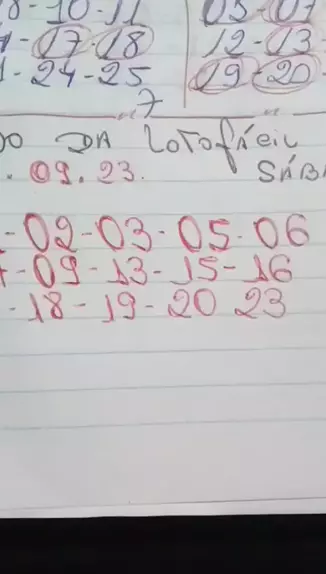 8-10-11
-17-18
-24-25
03-07
12-13-
19-20-
7
DO DA LOTOFÁCIL
. 09. 23. SÁBA
-02-03-05-06
-09-13-15-16
-18-19-20 23